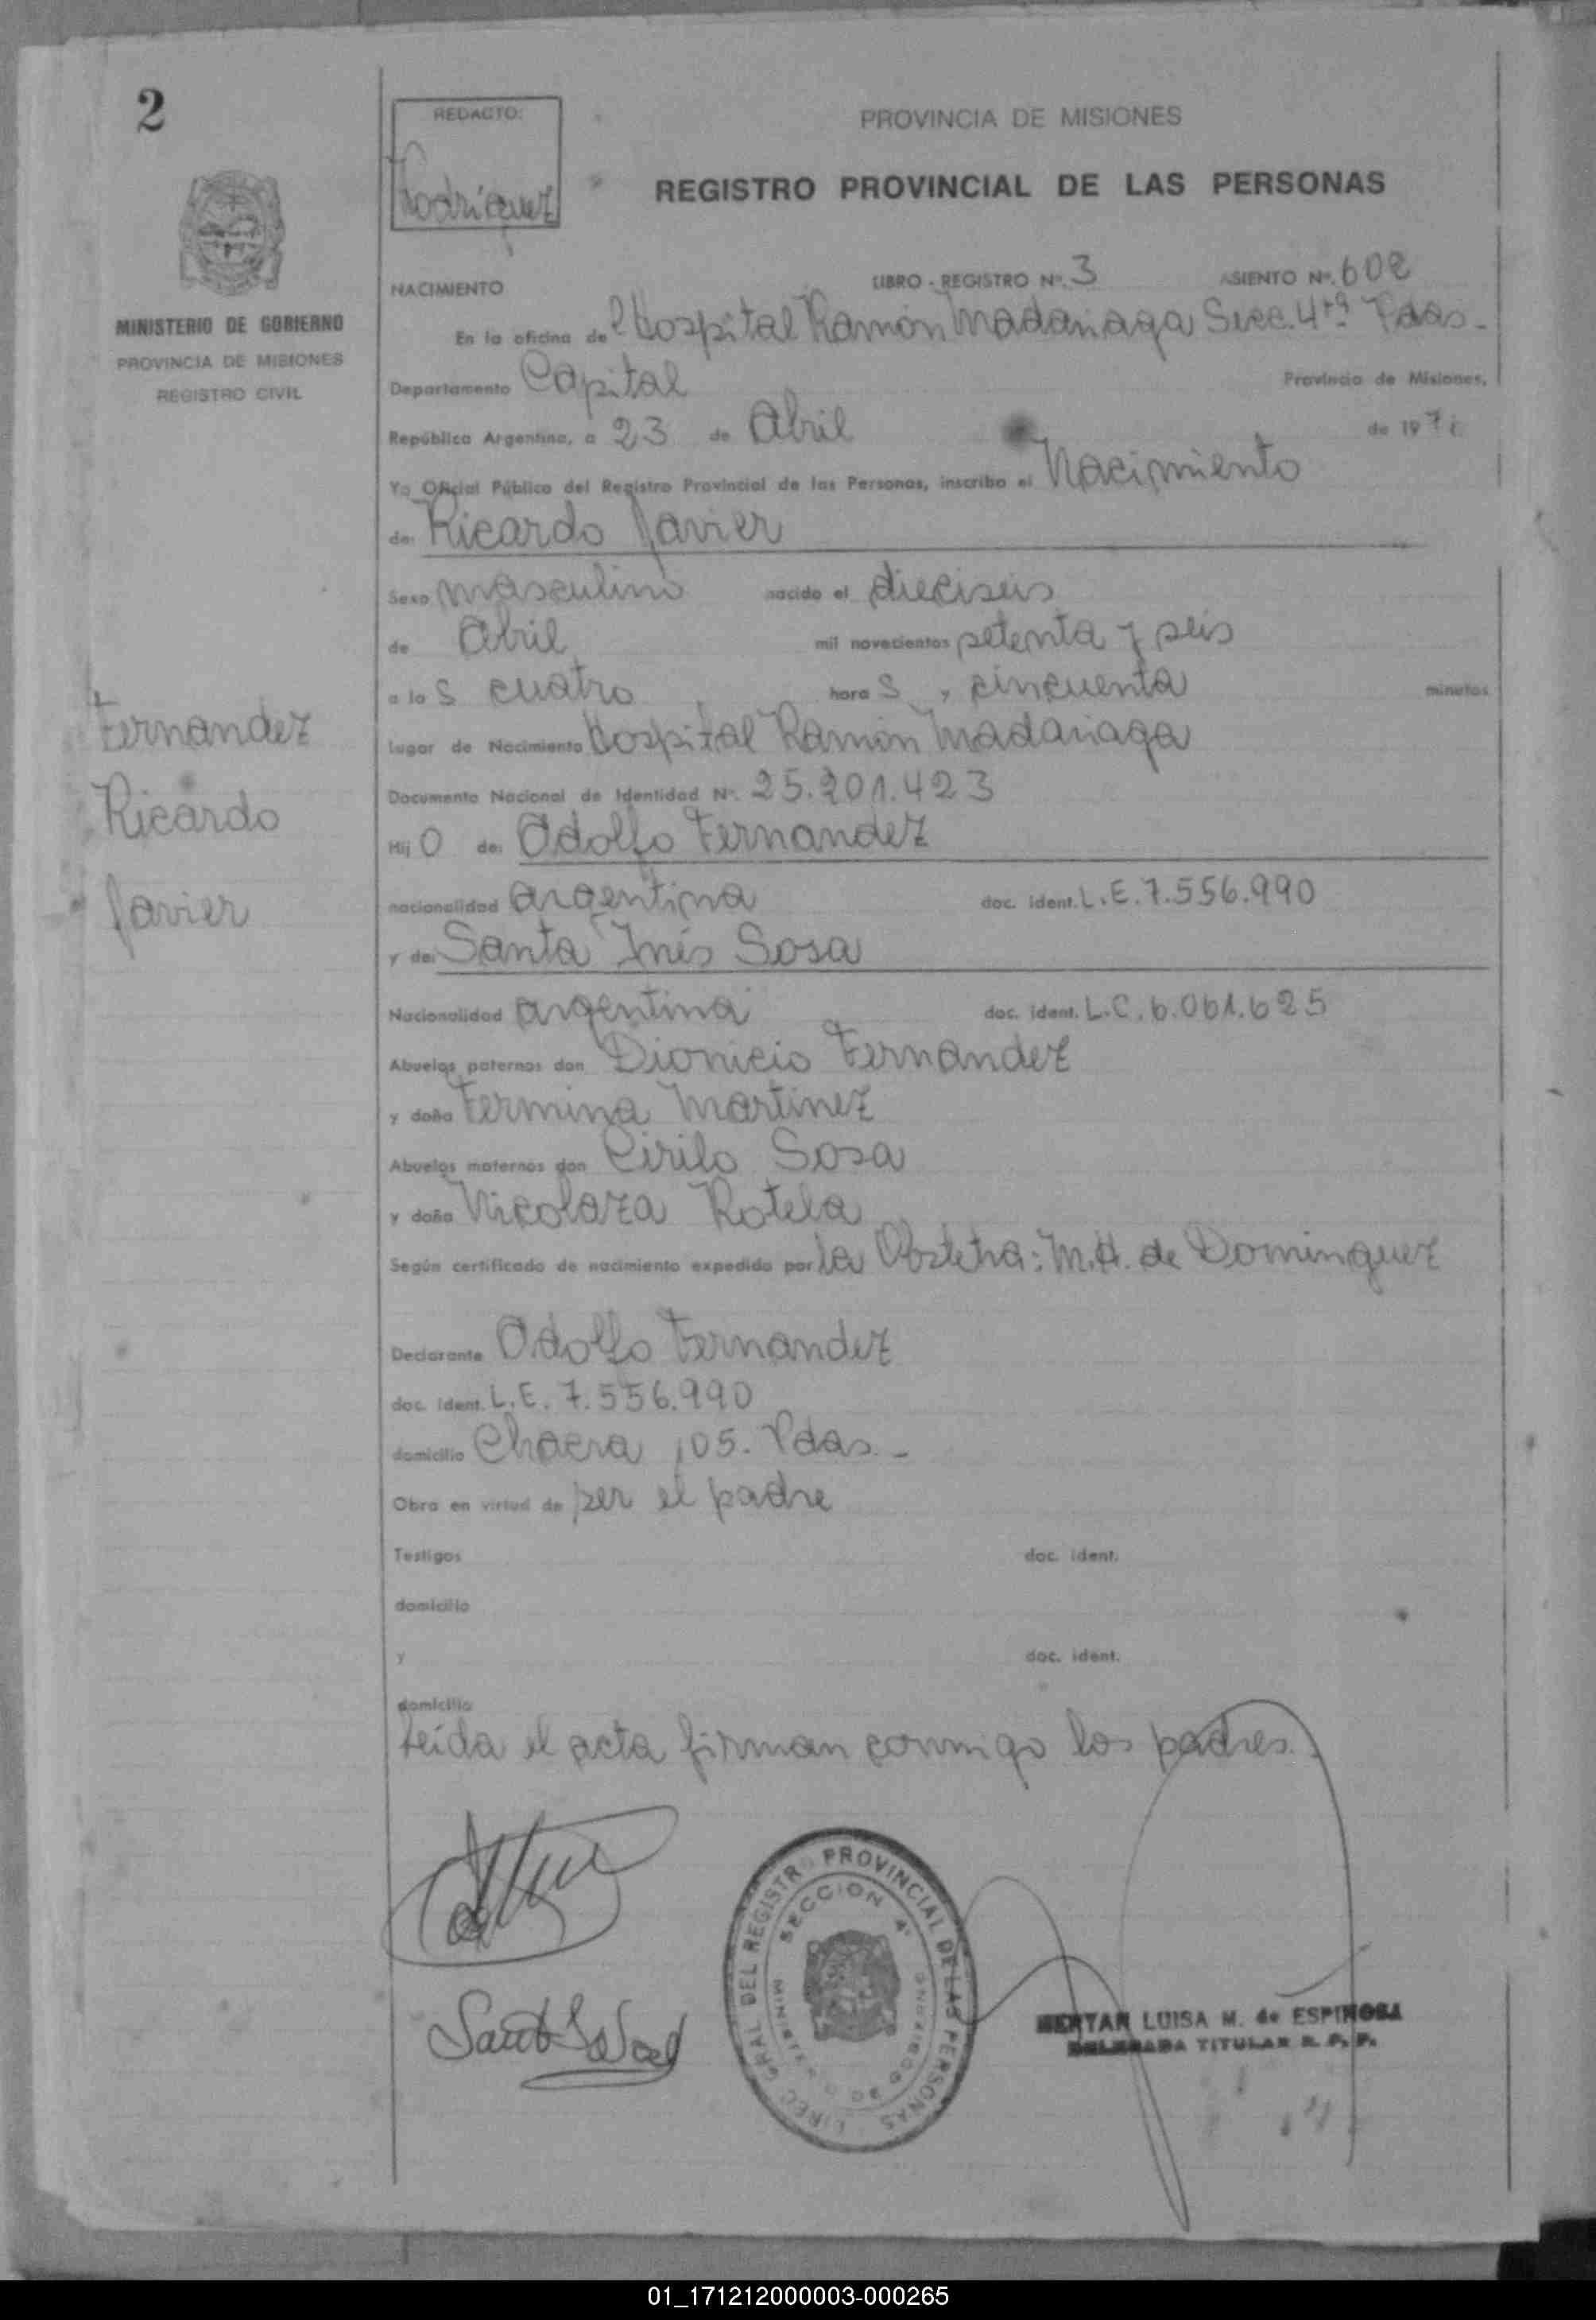 2
REDACTO:
Rodriguez
PROVINCIA DE MISIONES
REGISTRO PROVINCIAL DE LAS PERSONAS
MINISTERIO DE GOBIERNO
PROVINCIA DE MISIONES
REGISTRO CIVIL
NACIMIENTO LIBRO - REGISTRO Nº. 3 ASIENTO Nº. 602
En la oficina del Hospital Ramón Madariaga Secc. 4ta Pdas-
Departamento Capital Provincia de Misiones,
República Argentina, a 23 de Abril de 197
Yo Oficial Público del Registro Provincial de las Personas, inscribo el Nacimiento
de: Ricardo Javier
Sexo masculino nacido el dieciseis
de Abril mil novecientos setenta y seis
a las cuatro horas y cincuenta minutos
lugar de Nacimiento Hospital Ramón Madariaga
Documento Nacional de Identidad Nº. 25.201.423
Hijo de: Adolfo Fernandez
nacionalidad argentina doc. ident. L.E. 7.556.990
y de: Santa Inés Sosa
Nacionalidad argentina doc. ident. L.C. 6.061.625
Abuelos paternos don Dionicio Fernandez
y doña Fermina Martinez
Abuelos maternos don Cirilo Sosa
y doña Nicolaza Rotela
Según certificado de nacimiento expedido por la Obstetra: M.H. de Dominguez
Fernandez
Ricardo
Javier
Declarante Adolfo Fernandez
doc. ident. L.E. 7.556.990
domicilio Chacra 105. Pdas.-
Obra en virtud de ser el padre
Testigos doc. ident.
domicilio
y doc. ident.
domicilio
Leída el acta firman conmigo los padres.
DIREC. GRAL DEL REGISTRO PROVINCIAL DE LAS PERSONAS
SECCION 4ª
MINISTERIO DE GOBIERNO
LUISA M. de ESPINOSA
DELEGADA TITULAR R. P. P.
01_171212000003-000265